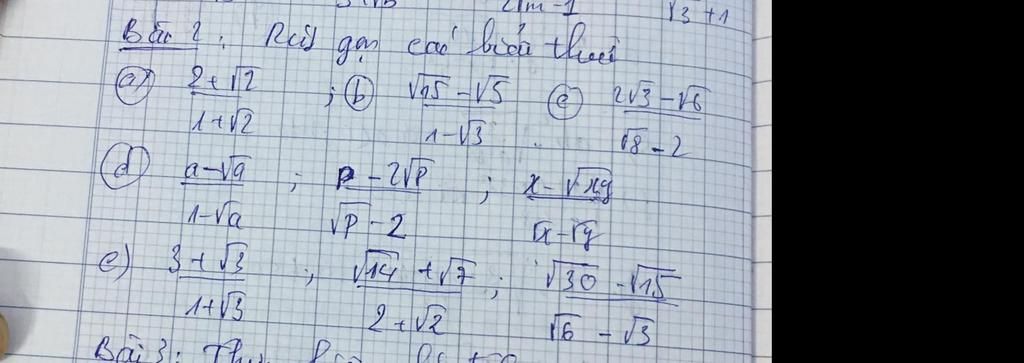 2m-1 √3 + 1
Bài 2 : Rút gọn các biểu thức
a) (2 + √2)/(1 + √2) ; b) (√15 - √5)/(1 - √3) c) (2√3 - √6)/(√8 - 2)
d) (a - √a)/(1 - √a) ; (p - 2√p)/(√p - 2) ; (x - √xy)/(√x - √y)
e) (3 + √3)/(1 + √3) ; (√14 + √7)/(2 + √2) ; (√30 - √15)/(√6 - √3)
Bài 3 :